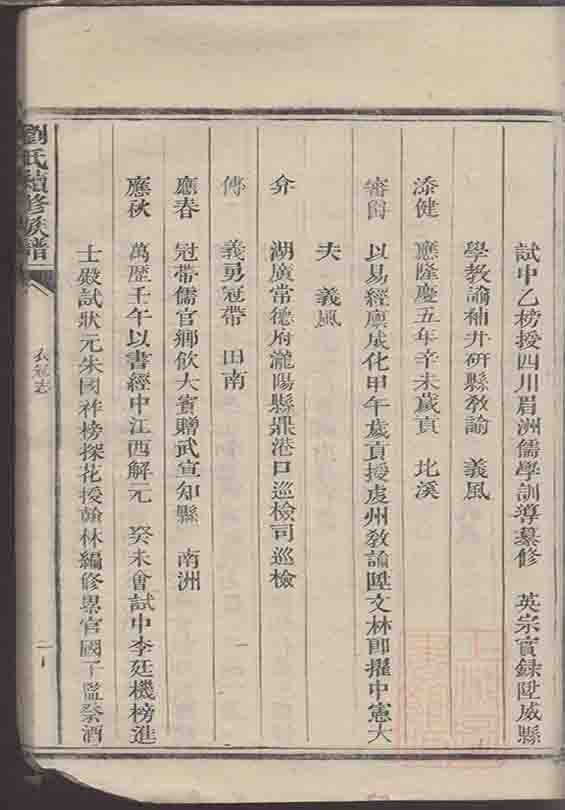 試中乙榜授四川眉洲儒學訓導纂修 英宗實錄陞威縣
學教諭補井研縣敎諭 義風
添健 應隆慶五年辛未歲貢 北溪
審爵 以易經廩成化甲午歲貢授處州敎諭陞文林郎擢中憲大
夫 義風
介 湖廣常德府瀧陽縣鼎港口巡檢司巡檢
傅 義勇冠帶 田南
應春 冠帶儒官鄉飲大賓贈武宣知縣 南洲
應秋 萬歷壬午以書經中江西解元 癸未會試中李廷機榜進
士殿試狀元朱國祚榜探花授翰林編修累官國子監祭酒
劉氏續修族譜
衣冠志